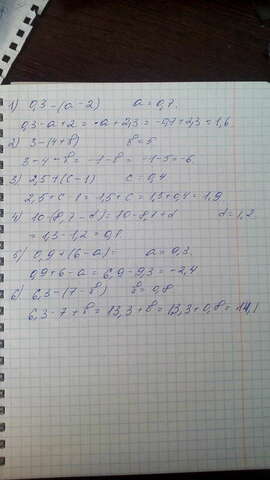 1) 0,3-(a-2) a=0,7.
0,3-a+2=-a+2,3=-0,7+2,3=1,6
2) 3-(4+b) b=5
3-4-b=-1-b=-1-5=-6
3) 2,5+(c-1) c=0,4
2,5+c-1=1,5+c=1,5+0,4=1,9
4) 10-(8,7-d)=10-8,7+d d=1,2
=1,3-1,2=0,1
5) 0,9+(6-a)= a=9,3
0,9+6-a=6,9-9,3=-2,4
6) 6,3-(7-b) b=0,8
6,3-7+b=13,3+b=13,3+0,8=14,1